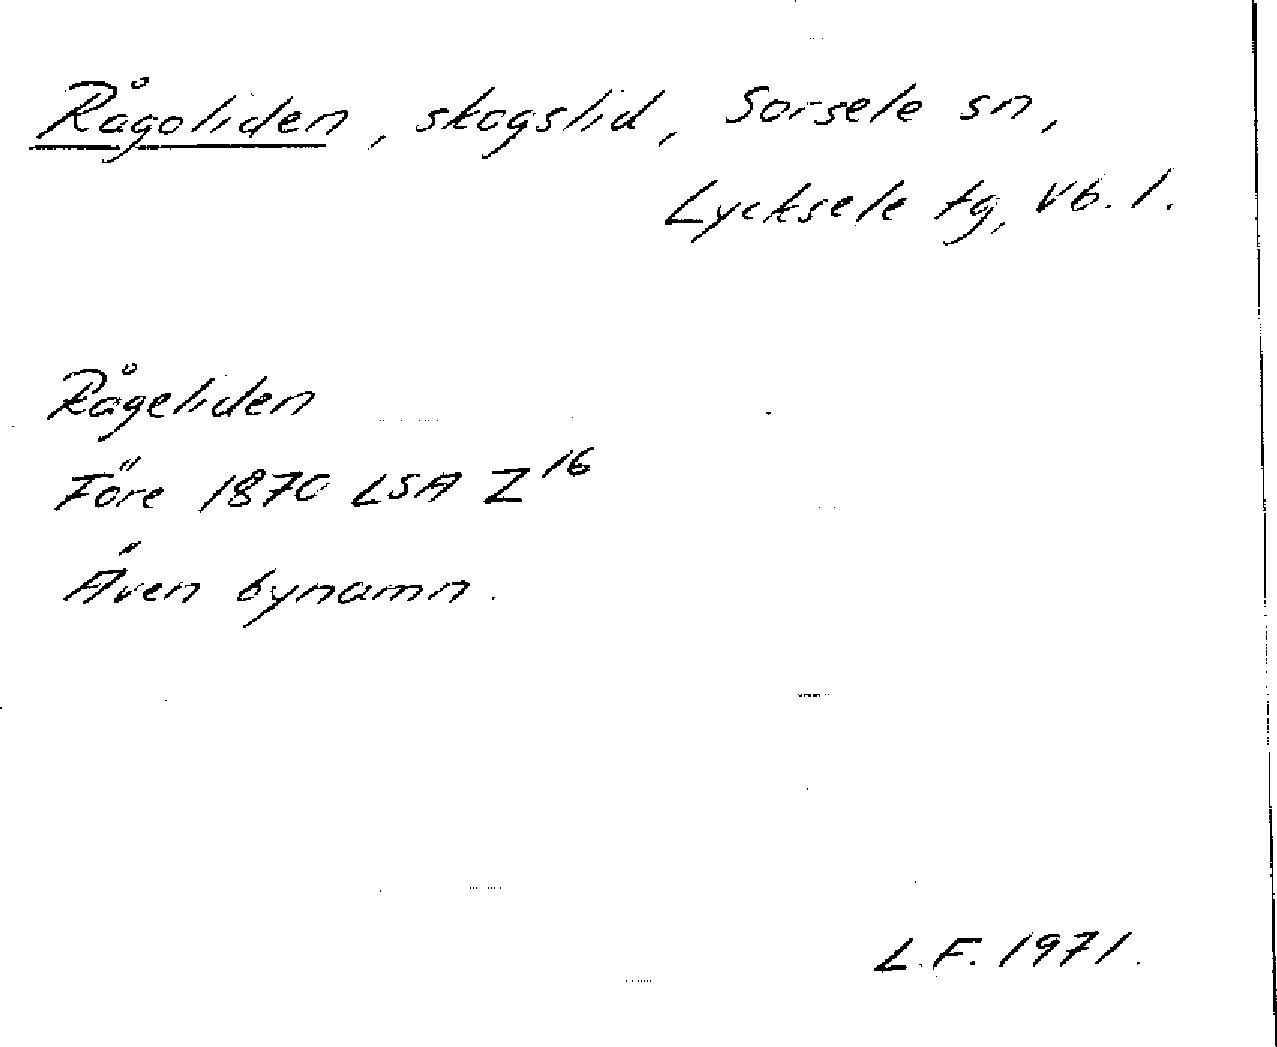 Rågoliden, skogslid, Sorsele sn,
Lycksele tg, Vb. l.
Rågeliden
Före 1870 LSA Z16
Även bynamn.
L.F. 1971.